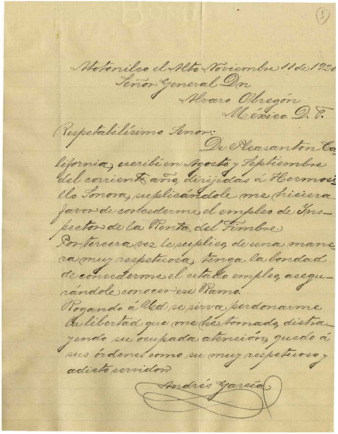 1
Atotonilco el Alto Noviembre 11 de 1920
Señor General Dn
Alvaro Obregón
México D. F.
Respetabilísimo Señor:
De Pleasanton Ca
lifornia, escribí en Agosto y Septiembre
del corriente año, dirijidas á Hermosi
llo Sonora, suplicándole me hiciera
favor de concederme el empleo de Ins
pector de la Renta del Timbre
Por tercera vez le suplico, de una mane
ra muy respetuosa, tenga la bondad
de concederme el citado empleo, asegu
rándole conocer ese Ramo.
Rogando á Ud se sirva perdonarme
la libertad que me he tomado, distra
yendo su ocupada atención, quedo á
sus órdenes como su muy respetuoso y
adicto servidor
Andrés García